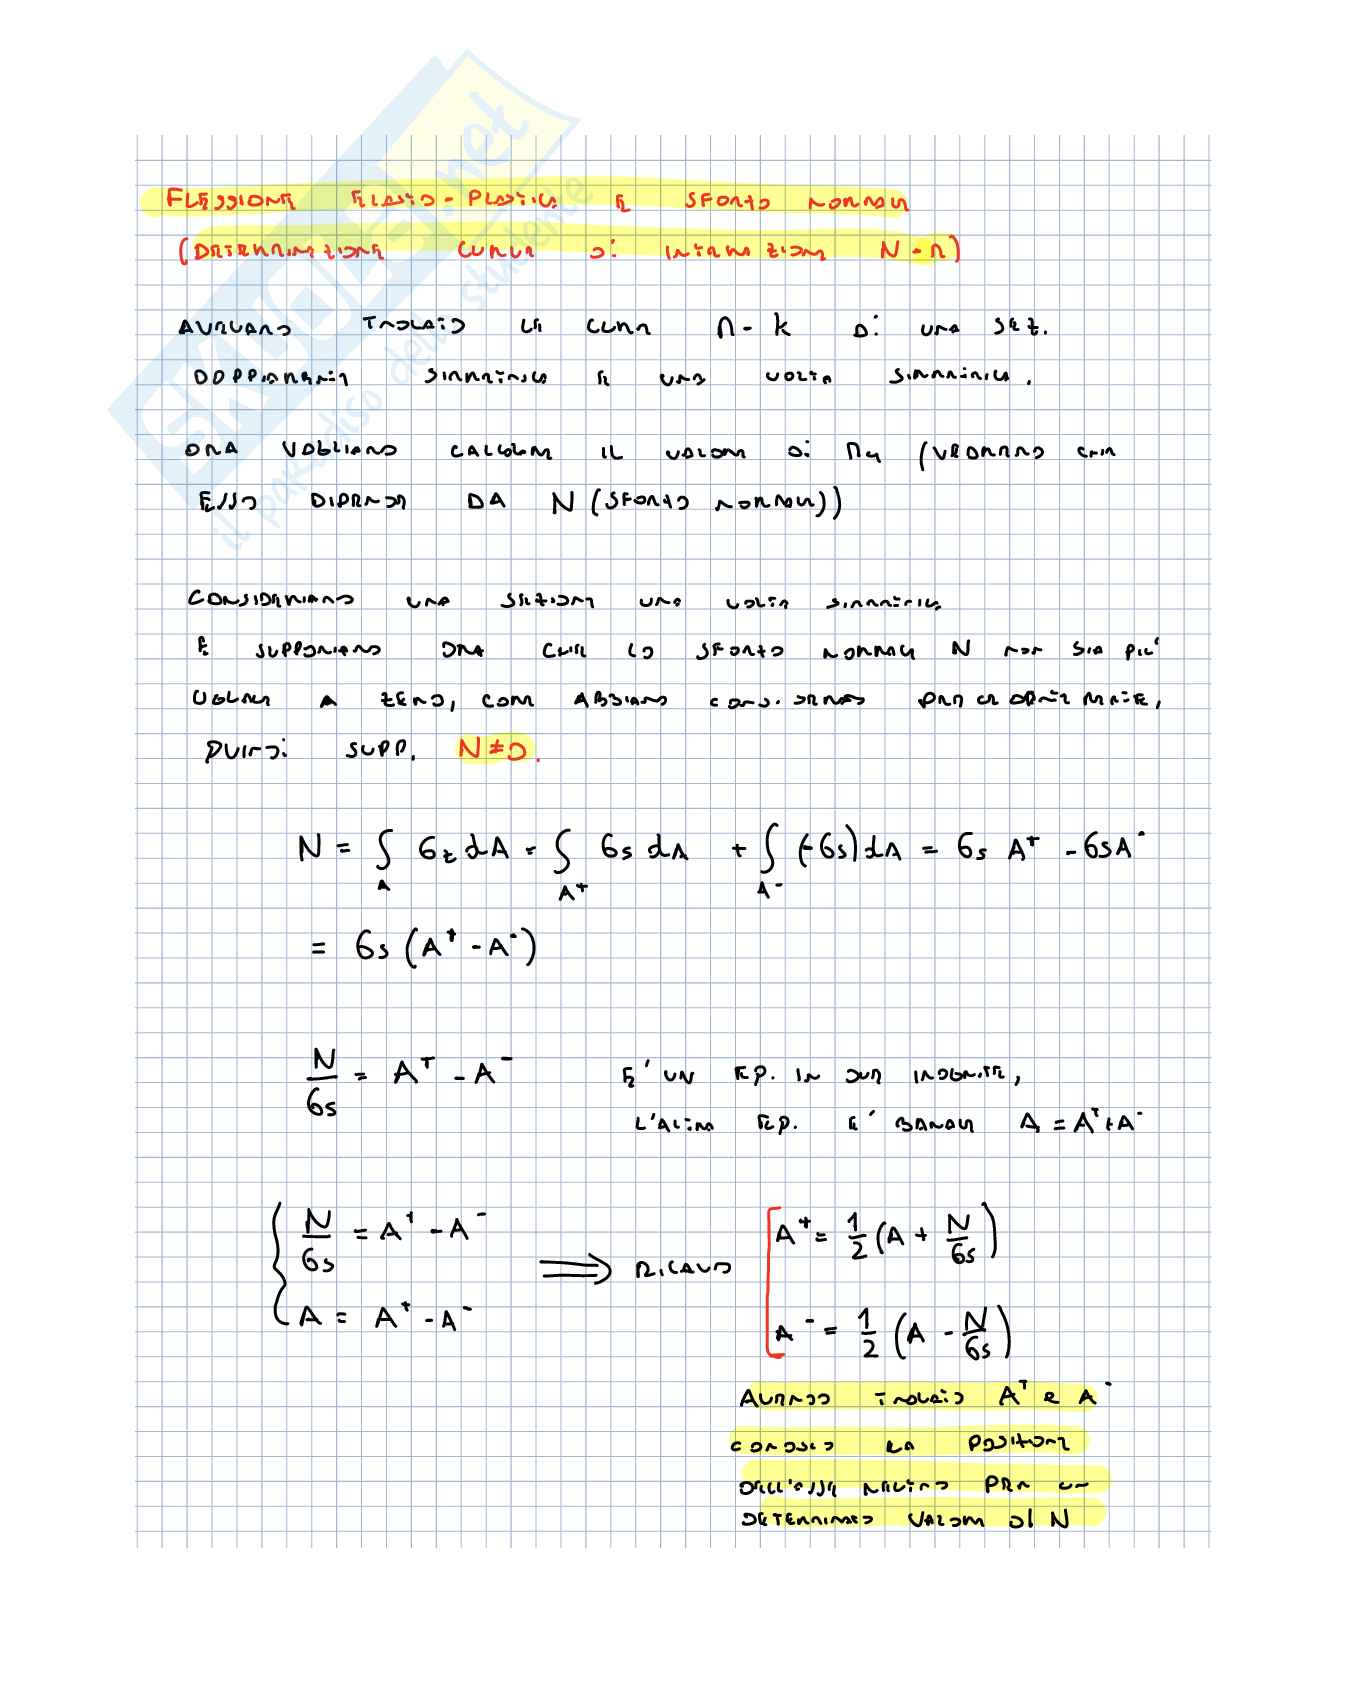 FLESSIONE ELASTO-PLASTICA E SFORZO NORMALE
(DETERMINAZIONE CURVA DI INTERAZIONE N-M)
AVEVAMO TROVATO LE CURVE M-k DI UNA SEZ.
DOPPIAMENTE SIMMETRICA E UNA VOLTA SIMMETRICA.
ORA VOGLIAMO CALCOLARE IL VALORE DI Mu (VEDREMO CHE
ESSO DIPENDE DA N (SFORZO NORMALE))
CONSIDERIAMO UNA SEZIONE UNA VOLTA SIMMETRICA
E SUPPONIAMO ORA CHE LO SFORZO NORMALE N NON SIA PIU'
UGUALE A ZERO, COME ABBIAMO CONSIDERATO PRECEDENTEMENTE,
QUINDI SUPP. N≠0.
N = ∫_A σz dA = ∫_A+ σs dA + ∫_A- (-σs) dA = σs A⁺ - σs A⁻
= σs (A⁺ - A⁻)
N/σs = A⁺ - A⁻ E' UN EQ. IN DUE INCOGNITE,
L'ALTRA EQ. E' BANALE A = A⁺ + A⁻
{ N/σs = A⁺ - A⁻
A = A⁺ - A⁻ ⟹ RICAVO [ A⁺ = 1/2 (A + N/σs)
A⁻ = 1/2 (A - N/σs)
AVENDO TROVATO A⁺ E A⁻
CONOSCO LA POSIZIONE
DELL'ASSE NEUTRO PER UN
DETERMINATO VALORE DI N
il paradiso dello studente
SKUOLA.net